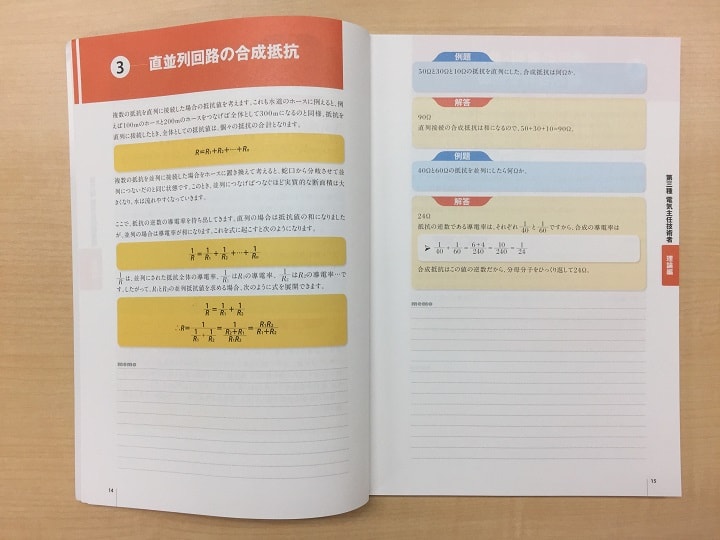 3 直並列回路の合成抵抗
複数の抵抗を直列に接続した場合の抵抗値を考えます。これも水道のホースに例えると、例
えば100mのホースと200mのホースをつなげば全体として300mになるのと同様、抵抗を
直列に接続したとき、全体としての抵抗値は、個々の抵抗の合計となります。
R=R₁+R₂+…+Rₙ
複数の抵抗を並列に接続した場合をホースに置き換えて考えると、蛇口から分岐させて並
列につないだのと同じ状態です。このとき、並列につなげばつなぐほど実質的な断面積は大
きくなり、水は流れやすくなっていきます。
ここで、抵抗の逆数の導電率を持ち出してきます。直列の場合は抵抗値の和になりました
が、並列の場合は導電率が和になります。これを式に起こすと次のようになります。
1/R = 1/R₁ + 1/R₂ +…+ 1/Rₙ
1/Rは、並列にされた抵抗全体の導電率、1/R₁はR₁の導電率、1/R₂はR₂の導電率…で
す。したがって、R₁とR₂の並列抵抗値を求める場合、次のように式を展開できます。
1/R = 1/R₁ + 1/R₂
∴R= 1/(1/R₁ + 1/R₂) = 1/((R₂+R₁)/(R₁R₂)) = R₁R₂/(R₁+R₂)
memo
14
例題
50Ωと30Ωと10Ωの抵抗を直列にした。合成抵抗は何Ωか。
解答
90Ω
直列接続の合成抵抗は和になるので、50+30+10=90Ω。
例題
40Ωと60Ωの抵抗を並列にしたら何Ωか。
解答
24Ω
抵抗の逆数である導電率は、それぞれ 1/40 と 1/60 ですから、合成の導電率は
1/40 + 1/60 = (6+4)/240 = 10/240 = 1/24
合成抵抗はこの値の逆数だから、分母分子をひっくり返して24Ω。
memo
第三種 電気主任技術者
理論編
15